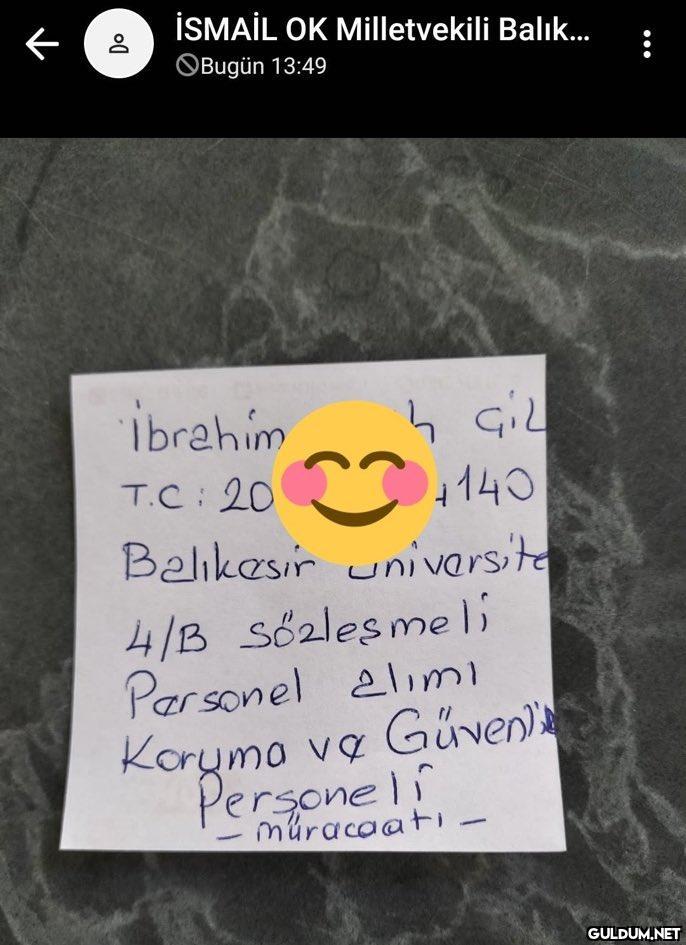 İSMAİL OK Milletvekili Balık...
Bugün 13:49
İbrahim h GİL
T.C: 20 4140
Balıkesir Üniversite
4/B sözleşmeli
Personel alımı
Koruma ve Güvenlik
Personeli
- müracaatı -
GULDUM.NET